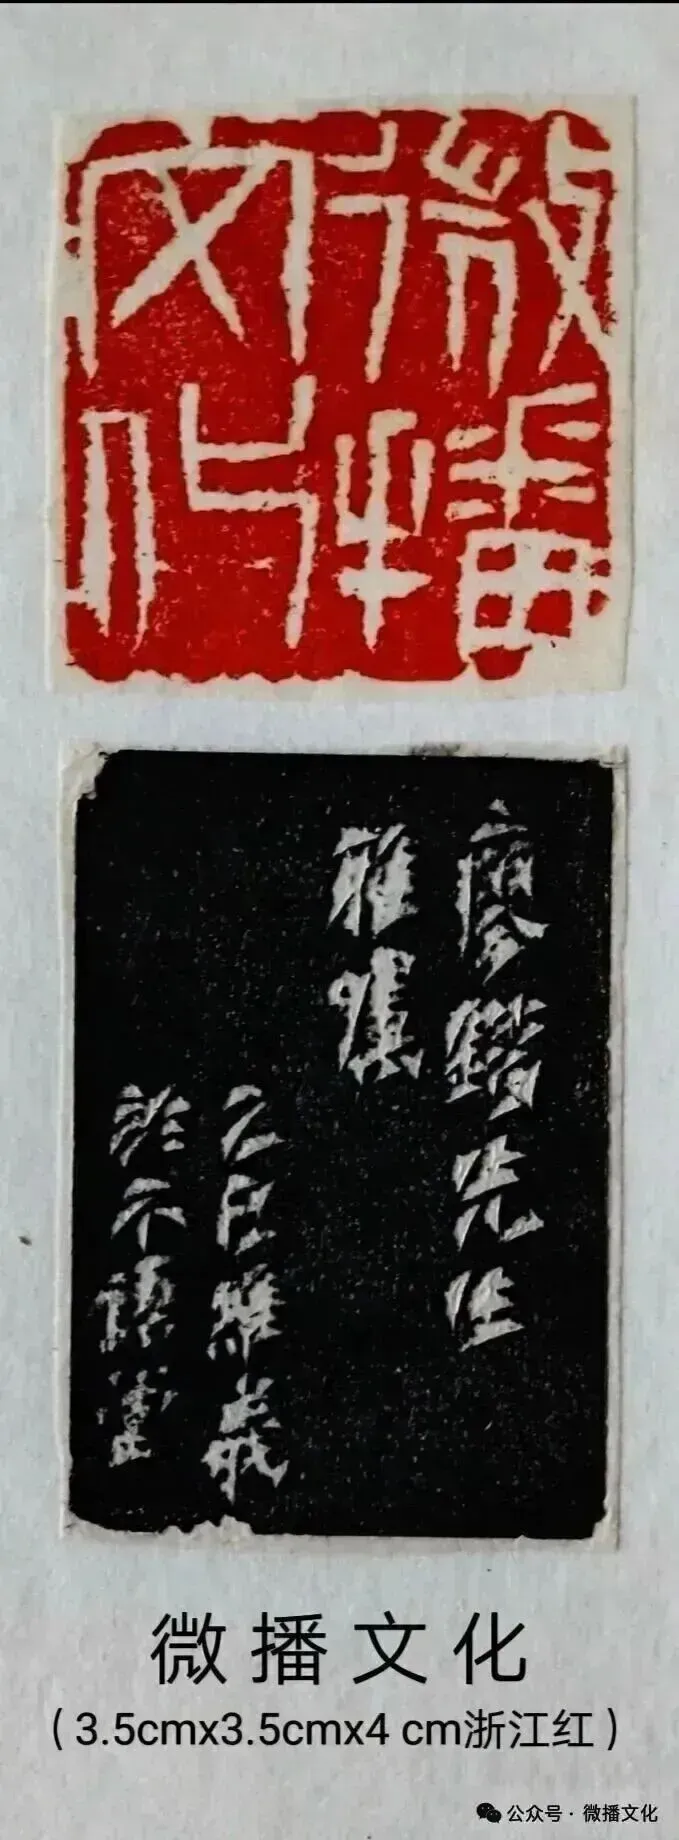 微播
文化
廖鍇先生
雅瑱
乙巳羅義
於不語齋
微播文化
(3.5cmx3.5cmx4 cm浙江红)
公众号 · 微播文化